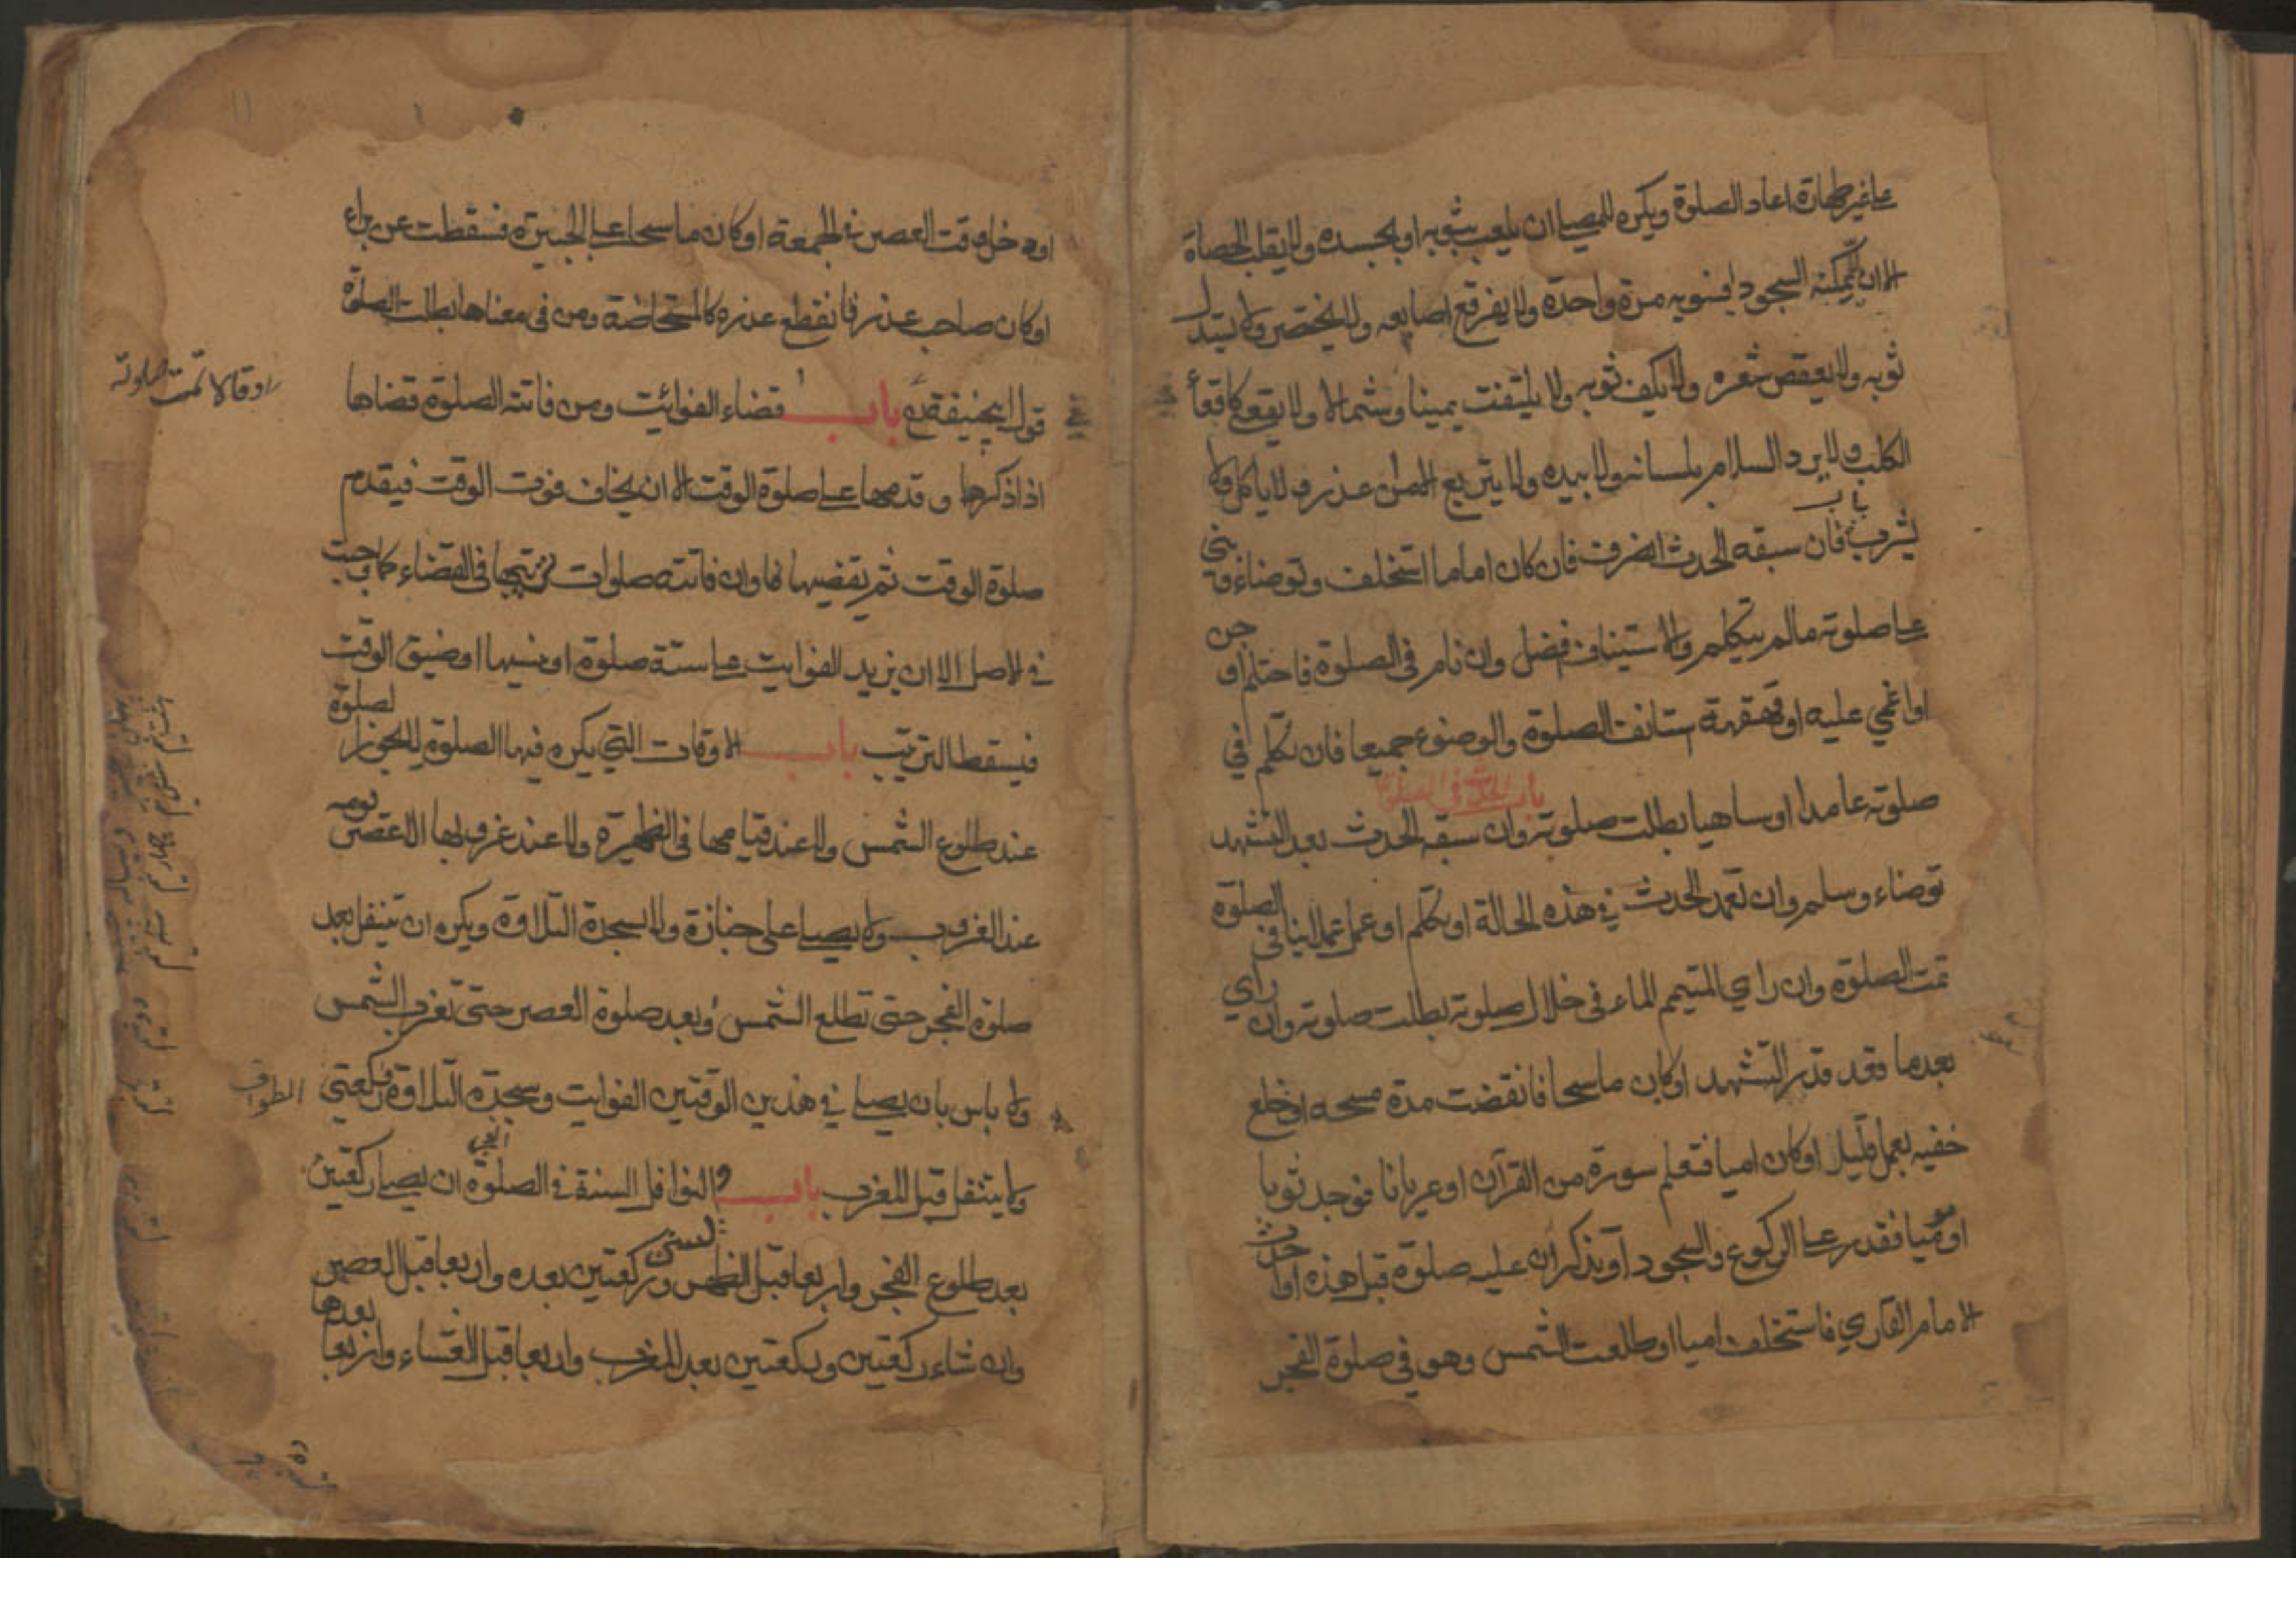 على غير طهارة اعاد الصلوة ويكره للمصلي ان يلعب بثوبه او بجسده ولا يقلب الحصاة
الا ان لا يمكنه السجود فيسويه مرة واحدة ولا يفرقع اصابعه ولا يتخصر ولا يسدل
ثوبه ولا يعقص شعره ولا يكف ثوبه ولا يلتفت يمينا وشمالا ولا يقعي كاقعأ
الكلب ولا يرد السلام بلسانه ولا بيده ولا يتربع الا من عذر ولا ياكل ولا
باب
يشرب فان سبقه الحدث انصرف فان كان اماما استخلف وتوضاء وبنى
على صلوته مالم يتكلم والاستيناف افضل وان نام في الصلوة فاحتلم او جن
او اغمي عليه او قهقهة استانف الصلوة والوضوء جميعا فان تكلم في
باب الحدث في الصلوة
صلوته عامدا او ساهيا بطلت صلوته وان سبقه الحدث بعد التشهد
توضاء وسلم وان تعمد الحدث في هذه الحالة او تكلم او عمل عملا ينافي الصلوة
تمت الصلوة وان راي المتيمم الماء في خلال صلوته بطلت صلوته وان راي
بعدما قعد قدر التشهد او كان ماسحا فانقضت مدة مسحه او خلع
خفيه بعمل قليل او كان اميا فتعلم سورة من القرآن او عريانا فوجد ثوبا
او موميا فقدر على الركوع والسجود او تذكر ان عليه صلوة قبل هذه او احدث
الامام القاري فاستخلف اميا او طلعت الشمس وهو في صلوة الفجر
او دخل وقت العصر في الجمعة او كان ماسحا على الجبيرة فسقطت عن براء
او كان صاحب عذر فانقطع عذره كالمستحاضة ومن في معناها بطلت الصلوة
قول ابي حنيفة باب قضاء الفوائيت ومن فاتته الصلوة قضاها
وقالا تمت صلوته
اذا ذكرها وقدمها على صلوة الوقت الا ان يخاف فوت الوقت فيقدم
صلوة الوقت ثم يقضيها وان فاتته صلوات رتبها في القضاء كما وجبت
في الاصل الا ان يزيد الفوايت على ستة صلوة او نسيها او ضيق الوقت
فيسقط الترتيب باب الاوقات التي يكره فيها الصلوة لا يجوز الصلوة
عند طلوع الشمس ولا عند قيامها في الظهيرة ولا عند غروبها الا عصر يومه
عند الغروب ولا يصلي على جنازة ولا سجدة التلاوة ويكره ان يتنفل بعد
صلوة الفجر حتى تطلع الشمس وبعد صلوة العصر حتى تغرب الشمس
ولا باس بان يصلي في هذين الوقتين الفوايت وسجدة التلاوة وركعتي الطواف
ولا يتنفل قبل المغرب باب النوافل السنة في الصلوة ان يصلي ركعتين
بعد طلوع الفجر واربعا قبل الظهر وركعتين بعده واربعا قبل العصر
وان شاء ركعتين وركعتين بعد المغرب واربعا قبل العشاء واربعا بعدها